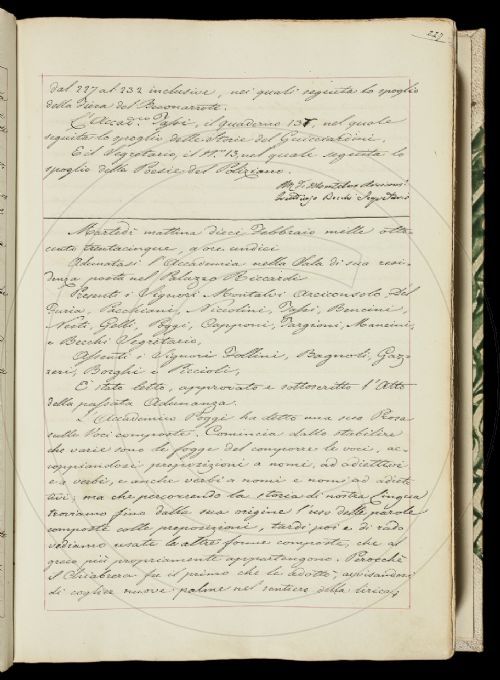 227
dal 227 al 232 inclusive, nei quali seguita lo spoglio
della Fiera del Buonarroti.
L'Accad.co Tassi, il quaderno 137, nel quale
seguita lo spoglio delle Storie del Guicciardini.
E il Segretario, il N.° 13, nel quale seguita lo
spoglio delle Poesie del Poliziano.
Fruttuoso Becchi Segretario
Martedì mattina dieci Febbraio mille otto
cento trentacinque, a ore undici
Adunatasi l'Accademia nella Sala di sua resi-
denza posta nel Palazzo Riccardi
Presenti i Signori Montalvi Arciconsolo, Del
Furia, Pacchiani, Niccolini, Tassi, Bencini,
Nesti, Gelli, Poggi, Capponi, Targioni, Mancini,
e Becchi Segretario,
Assenti i Signori Follini, Bagnoli, Gaz-
zeri, Borghi e Piccioli,
E' stato letto, approvato e sottoscritto l'Atto
della passata Adunanza.
L'Accademico Poggi ha detto una sua Prosa
sulle Voci composte. Comincia dallo stabilire
che varie sono le fogge del comporre le voci, ac-
coppiandosi preposizioni a nomi, ad adiettivi
e a verbi, e anche verbi a nomi e nomi ad adiet-
tivi; ma che percorrendo la storia di nostra Lingua
troviamo fino dalla sua origine l'uso delle parole
composte colle preposizioni, tardi poi e di rado
vediamo usate le altre forme composte, che al
greco più propriamente appartengono. Perocchè
il Chiabrera fu il primo che le adottò, avvisandosi
di cogliere nuove palme nel sentiero della lirica,